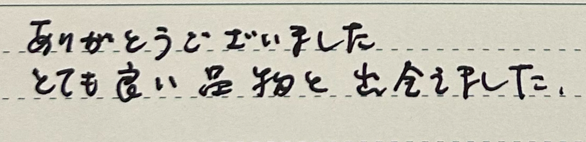 ありがとうございました
とても良い品物と出会えました.